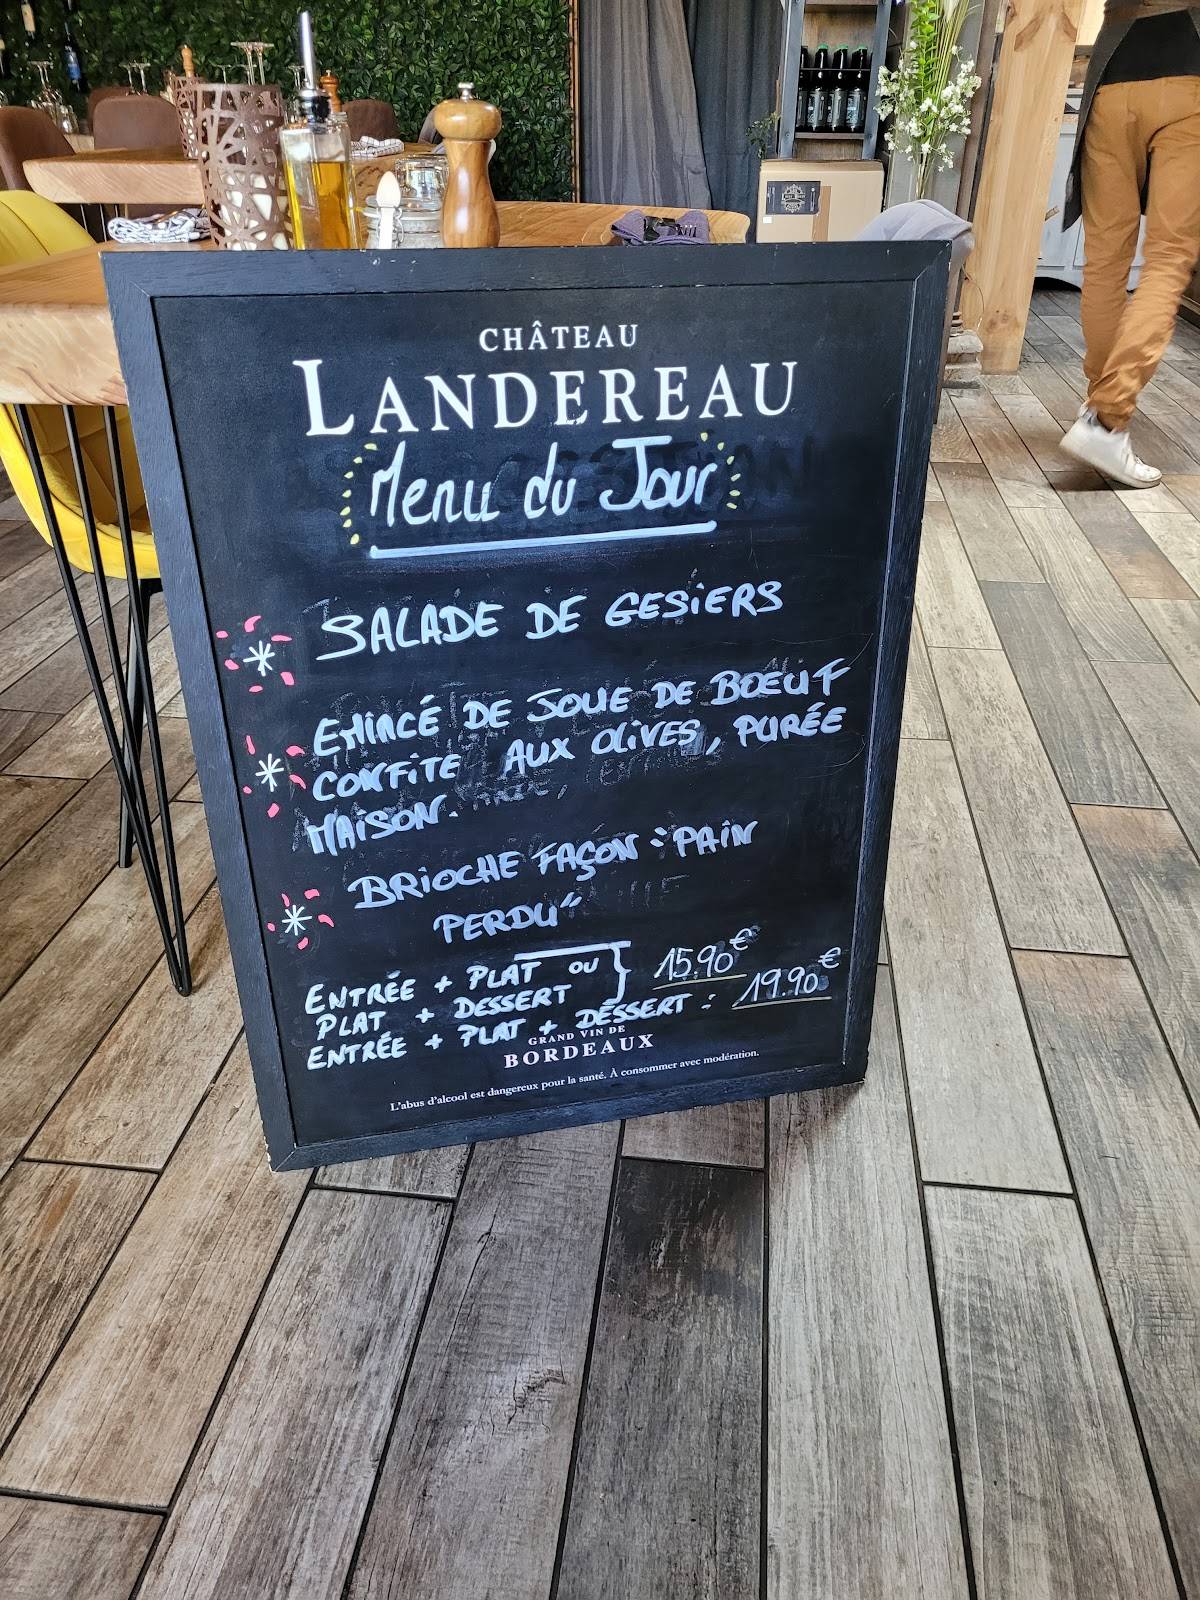 CHÂTEAU
LANDEREAU
Menu du Jour
SALADE DE GESiERS
EMiNCÉ DE JOUE DE BOEUF
CONFiTE AUX OLiVES, PURÉE
MAiSON.
BRiOCHE FAÇON "PAiN
PERDU"
ENTRÉE + PLAT OU
PLAT + DESSERT } 15.90€
ENTRÉE + PLAT + DESSERT : 19.90€
GRAND VIN DE
BORDEAUX
L'abus d'alcool est dangereux pour la santé. À consommer avec modération.